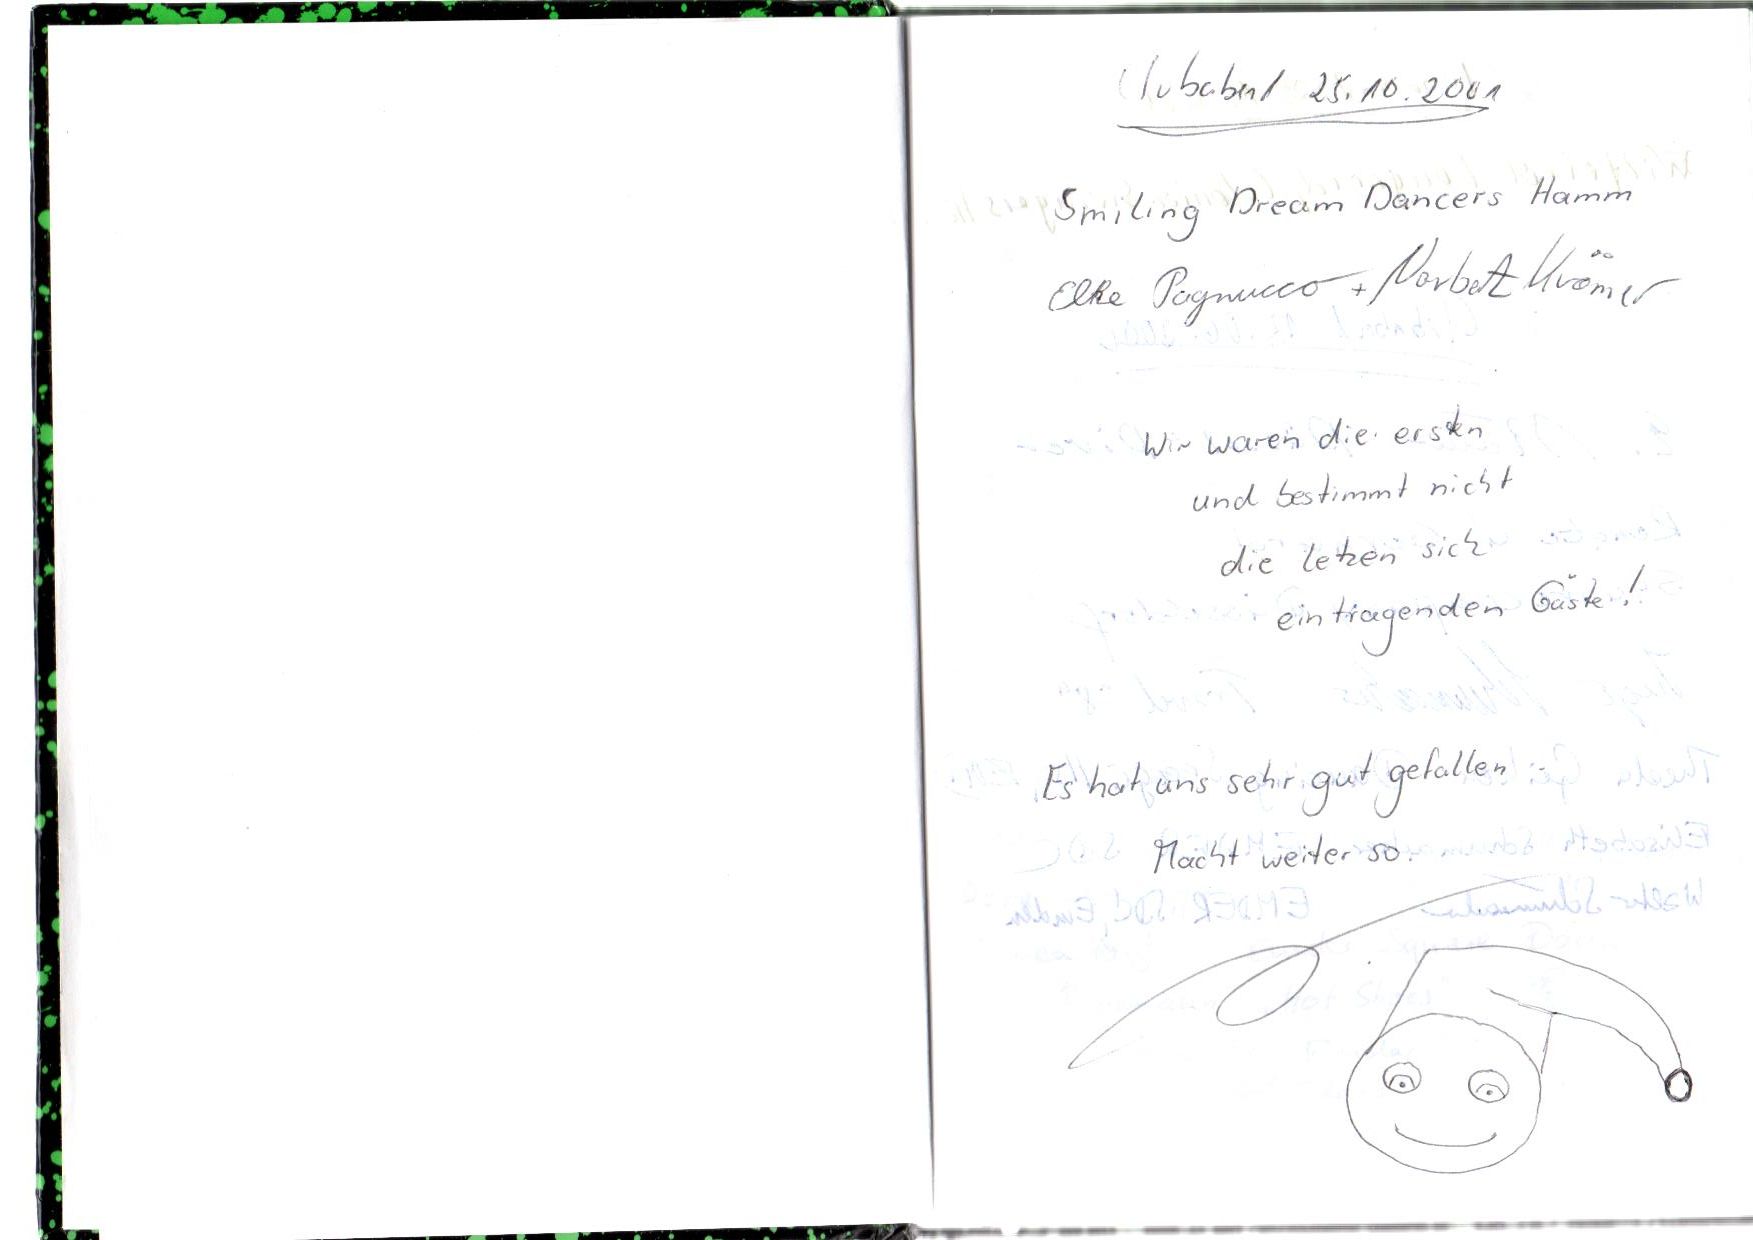 Clubabend 25.10.2001
Smiling Dream Dancers Hamm
Elke Pagnucco + Norbert Krömer
Wir waren die ersten
und bestimmt nicht
die letzen sich
eintragenden Gäste!
Es hat uns sehr gut gefallen -
Macht weiter so.